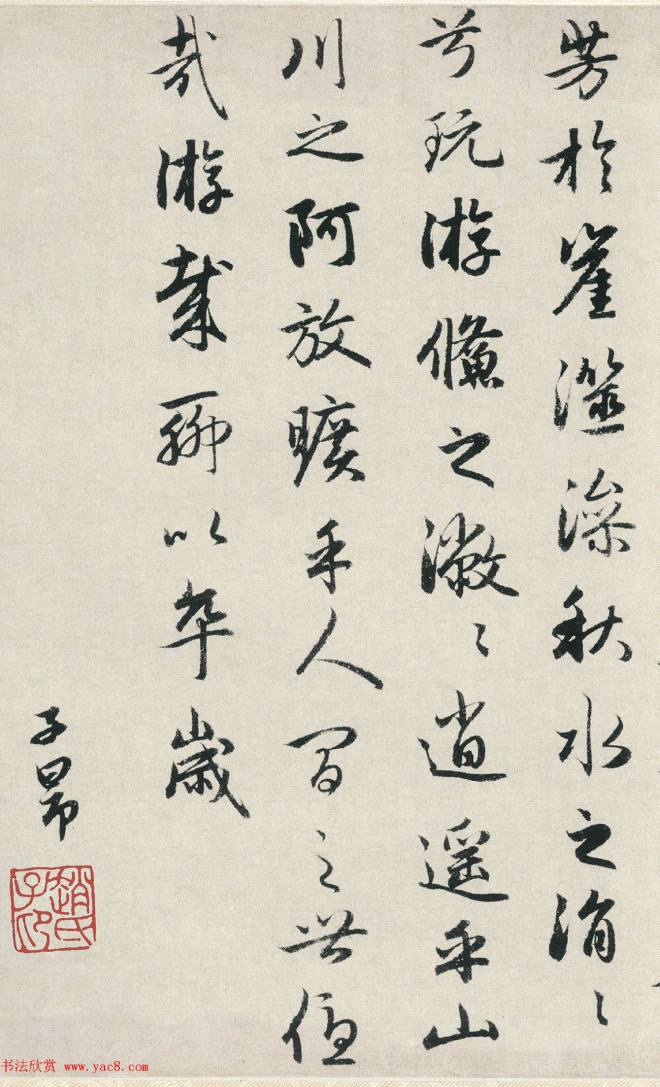 芳於崖澨澡秋水之涓〻
兮玩游鯈之潎〻逍遥乎山
川之阿放曠乎人間之世優
哉游哉聊以卒歲
子昂
趙氏子昂
书法欣赏 www.yac8.com